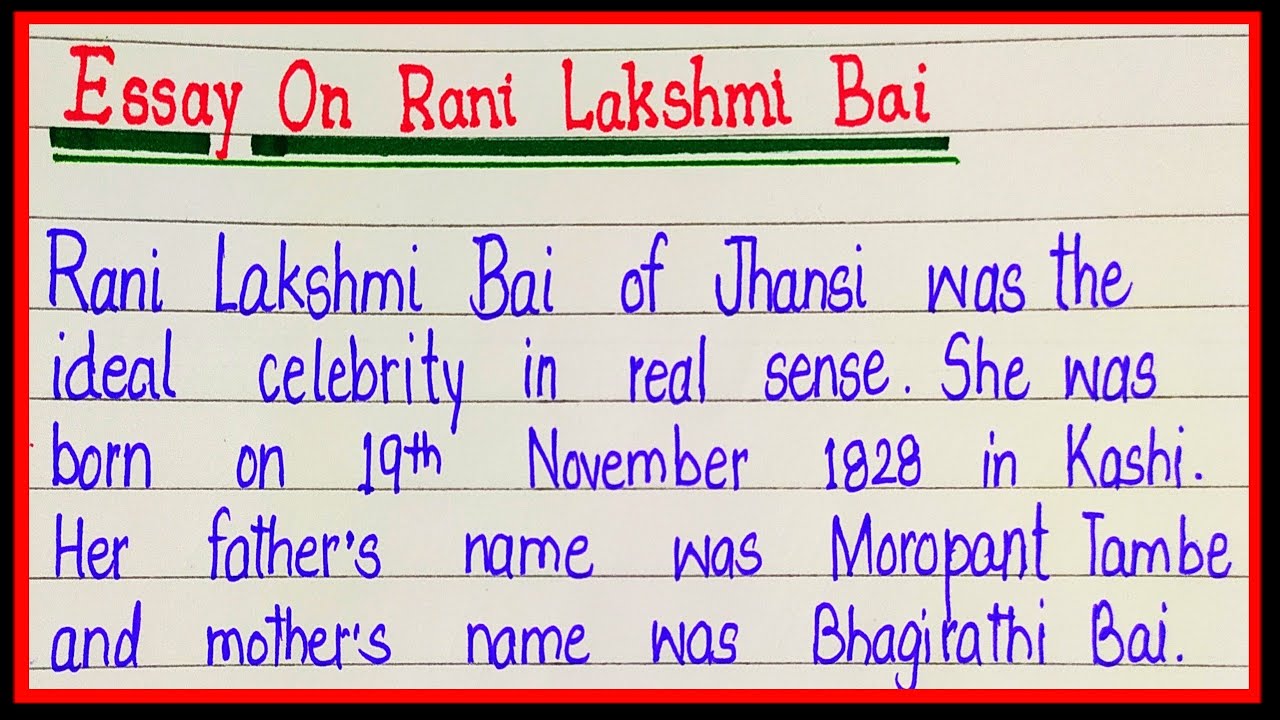 Essay On Rani Lakshmi Bai
Rani Lakshmi Bai of Jhansi was the
ideal celebrity in real sense. She was
born on 19th November 1828 in Kashi.
Her father's name was Moropant Tambe
and mother's name was Bhagirathi Bai.